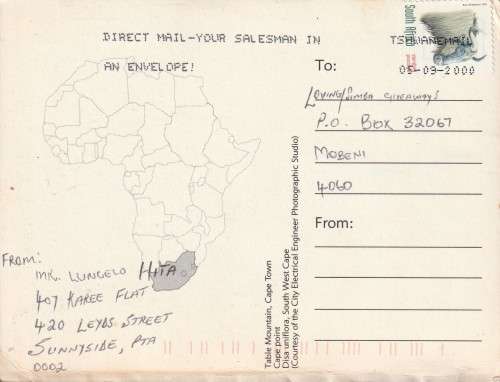 DIRECT MAIL-YOUR SALESMAN IN
AN ENVELOPE!
TSHWANEMAIL
05-09-2000
South Africa
To:
Loving/Simba Giveaways
P.O. Box 32067
Mobeni
4060
From:
From:
Mr. Lungelo Hita
407 Karee Flat
420 Leyds Street
Sunnyside, PTA
0002
Table Mountain, Cape Town
Cape point
Disa uniflora, South West Cape
(Courtesy of the City Electrical Engineer Photographic Studio)